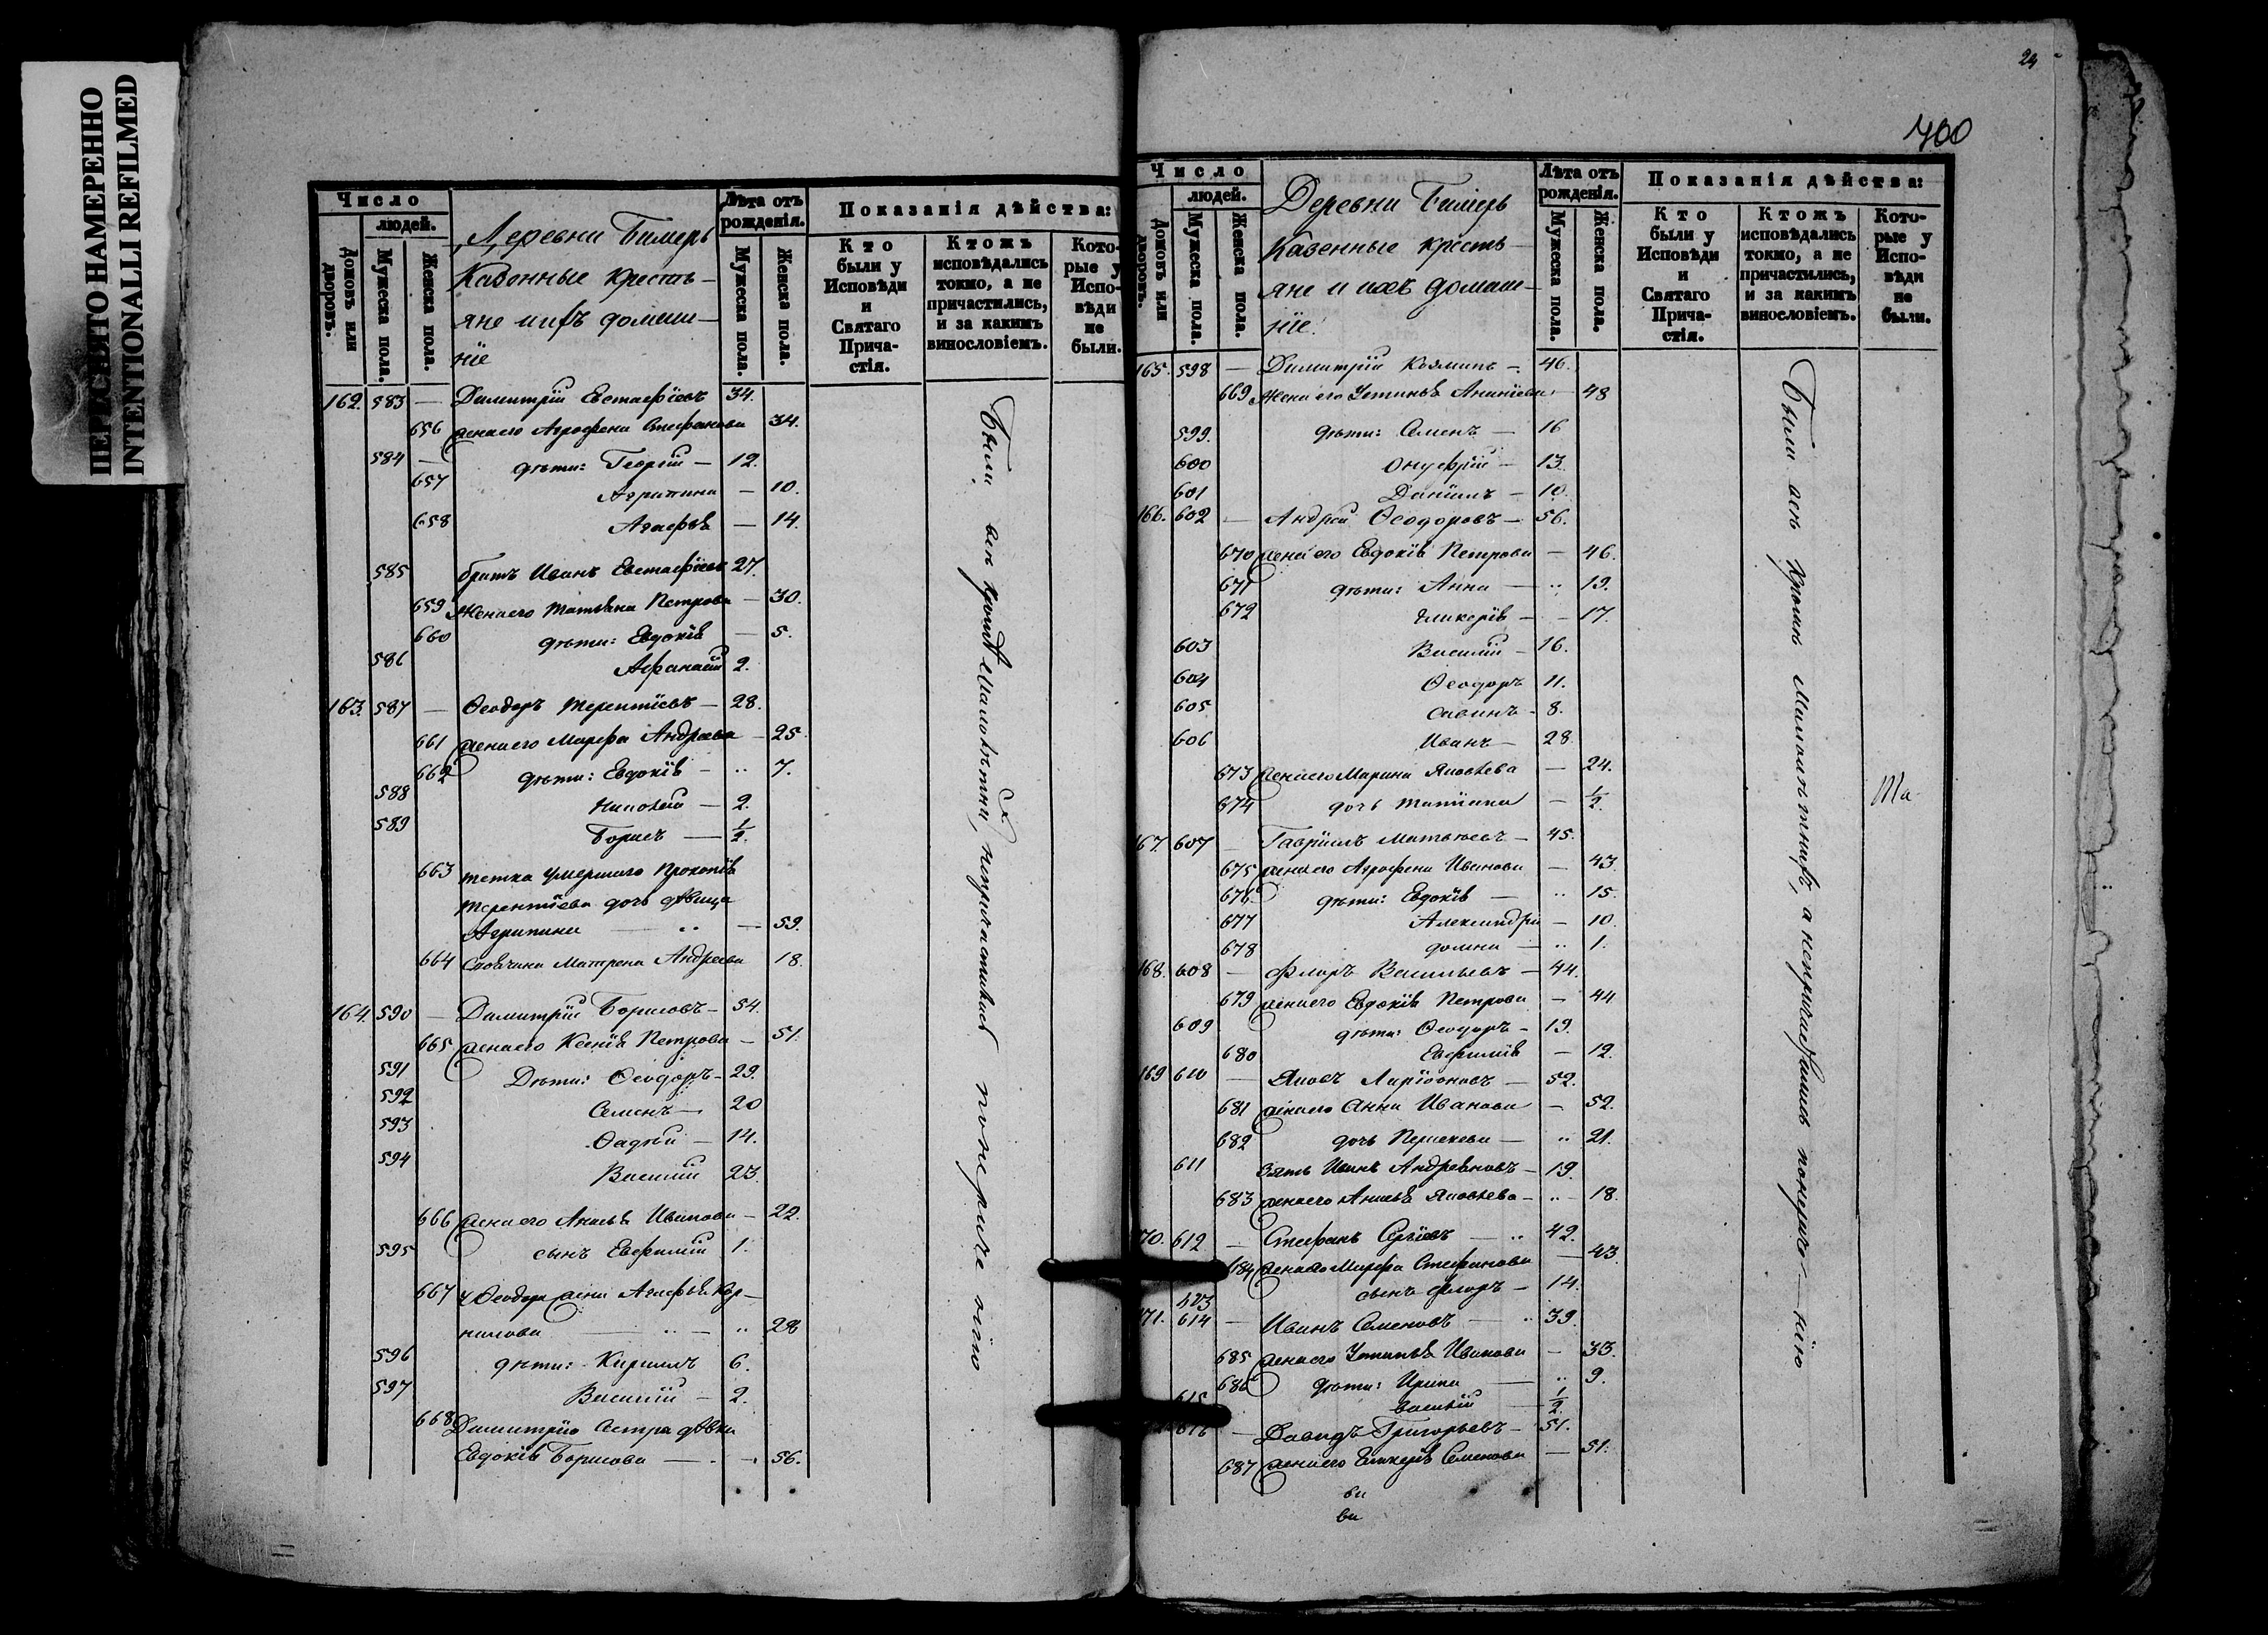 ПЕРЕСНЯТО НАМЕРЕННО
INTENTIONALLI REFILMED
Число
людей.
Домовъ или дворовъ.
Мужеска пола.
Женска пола.
Деревни Бимеръ
Казенные кресть-
яне и ихъ домаш-
ніе
Лѣта отъ рожденія.
Мужеска пола.
Женска пола.
Показанія дѣйства:
Кто были у Исповѣди и Святаго Причастія.
Ктожъ исповѣдались токмо, а не причастились, и за какимъ винословіемъ.
Которые у Исповѣди не были.
162. 583 — Димитрій Евстафіевъ 34.
656 жена его Агрофена Стефанова 34.
584 — дѣти: Георгій — 12.
657 Агрипина — 10.
658 Агафья — 14.
585 братъ Иванъ Евстафіевъ 27.
659 Жена его Татьяна Петрова — 30.
660 дѣти: Евдокія — 5.
586 Афанасій 2.
163. 587 — Ѳеодоръ Терентіевъ — 28.
661 жена его Марфа Андреева — 25
662 дѣти: Евдокія — 7.
588 Николай — 2.
589 Борисъ — 1/2.
663 тетка умершаго Прокопія
Терентіева дочь дѣвица
Агрипина — 59.
664 Матрена Андреева 18.
164. 590 — Димитрій Борисовъ — 54.
665 жена его Ксенія Петрова — 51.
591 Дѣти: Ѳеодоръ — 29.
592 Семенъ — 20
593 Ѳадѣй — 14.
594 Василій 23.
666 жена его Анисья Иванова — 22.
595 сынъ Евфимій 1.
667 у Ѳеодора жена Агафья Кор-
нилова — 28
596 дѣти: Кириллъ 6.
597 Василій — 2.
668 Димитрія сестра дѣвка
Евдокія Борисова — 56.
Были всѣ кромѣ малолѣтних, непричастились понерачению
24
400
Число
людей.
Домовъ или дворовъ.
Мужеска пола.
Женска пола.
Деревни Бимеръ
Казенные кресть-
яне и ихъ домаш-
ніе.
Лѣта отъ рожденія.
Мужеска пола.
Женска пола.
Показанія дѣйства:
Кто были у Исповѣди и Святаго Причастія.
Ктожъ исповѣдались токмо, а не причастились, и за какимъ винословіемъ.
Которые у Исповѣди не были.
165. 598 — Димитрій Козминъ — 46.
669 Жена его Устинья Ананіева — 48
599. дѣти: Семенъ — 16
600 Онуфрій — 13.
601 Даніилъ — 10.
166. 602 — Андрей Ѳеодоровъ — 56.
670 жена его Евдокія Петрова — 46.
671 дѣти: Анна — 19.
672 Гликерія — 17.
603 Василій — 16.
604 Ѳеодоръ 11.
605 Савинъ — 8.
606 Иванъ — 28.
673 жена его Марина Яковлева — 24.
674 дочь Татіана — 1/2.
167. 607 — Гавріилъ Матвѣевъ — 45.
675 жена его Агрофена Иванова — 43.
676 дѣти: Евдокія — 15.
677 Александра — 10.
678 Домна — 1.
168. 608 — Флоръ Васильевъ — 44.
679 жена его Евдокія Петрова — 44
609 дѣти: Ѳеодоръ — 19.
680 Евфимія — 12.
169 610 — Яковъ Ларіоновъ — 52.
681 жена его Анна Иванова — 52.
682 дочь Параскева — 21.
611 Зять Иванъ Андреяновъ — 19.
683 жена его Анисья Яковлева — 18.
70. 612 — Стефанъ Сергіевъ — 42.
684 жена его Марфа Стефанова — 43.
613 сынъ Флоръ — 14.
71. 614 — Иванъ Семеновъ — 39.
685 жена его Устинья Иванова — 33.
686 дѣти: Ирина — 9.
615 Василій — 1/2.
616 — Давидъ Григорьевъ — 51.
687 жена его Гликерія Семенова — 51.
ва
ва
Были всѣ кромѣ малолѣтнихъ, а непричастились понераче— нію
Ма